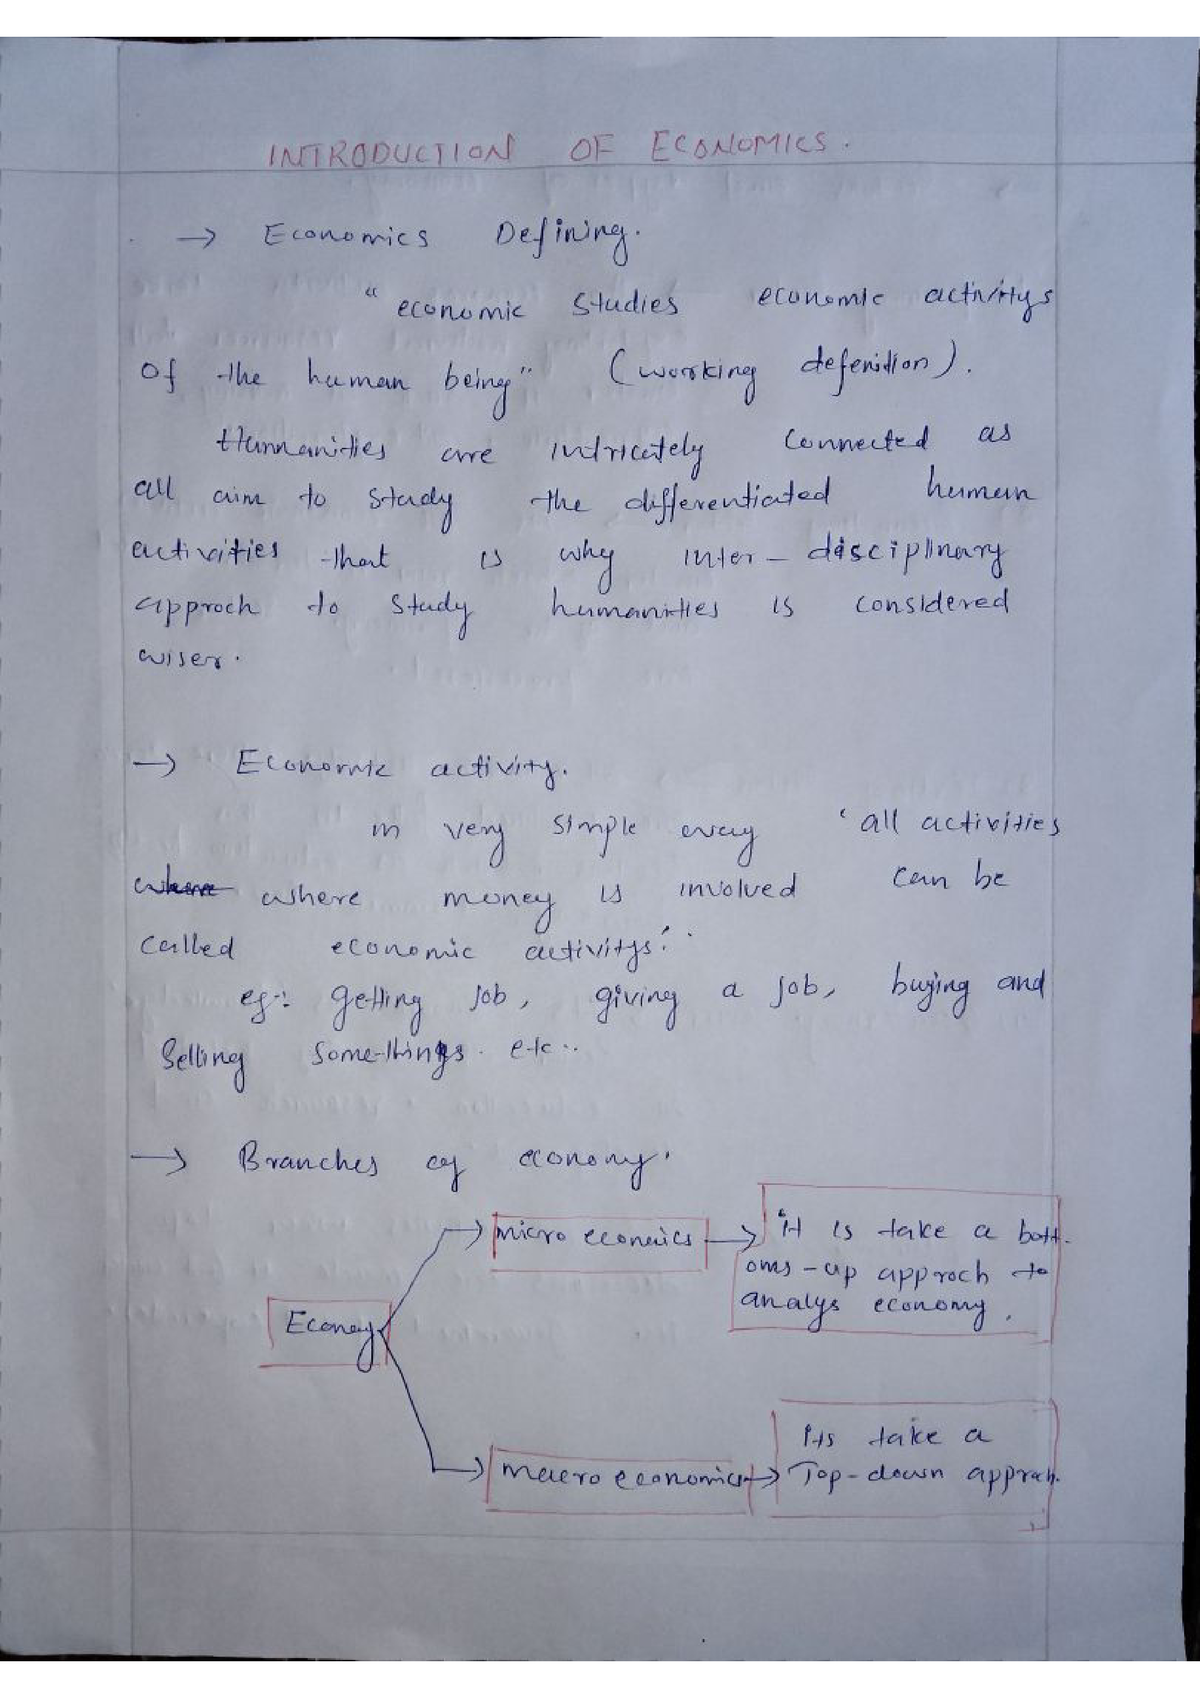 INTRODUCTION OF ECONOMICS.
→ Economics Defining.
"economic studies economic activitys
of the human being" (working defenition).
Humanities are intricately connected as
all aim to study the differentiated human
activities that is why inter-disciplinary
approch to study humanities is considered
wiser.
→ Economic activity.
in very simple way 'all activities
where where money is involved can be
called economic activitys'.
eg:- getting job, giving a job, buying and
Selling somethings. etc..
→ Branches of economy.
micro economics → it is take a bott-
oms-up approch to
analys economy.
Economy
macro economics → its take a
Top-down approch.